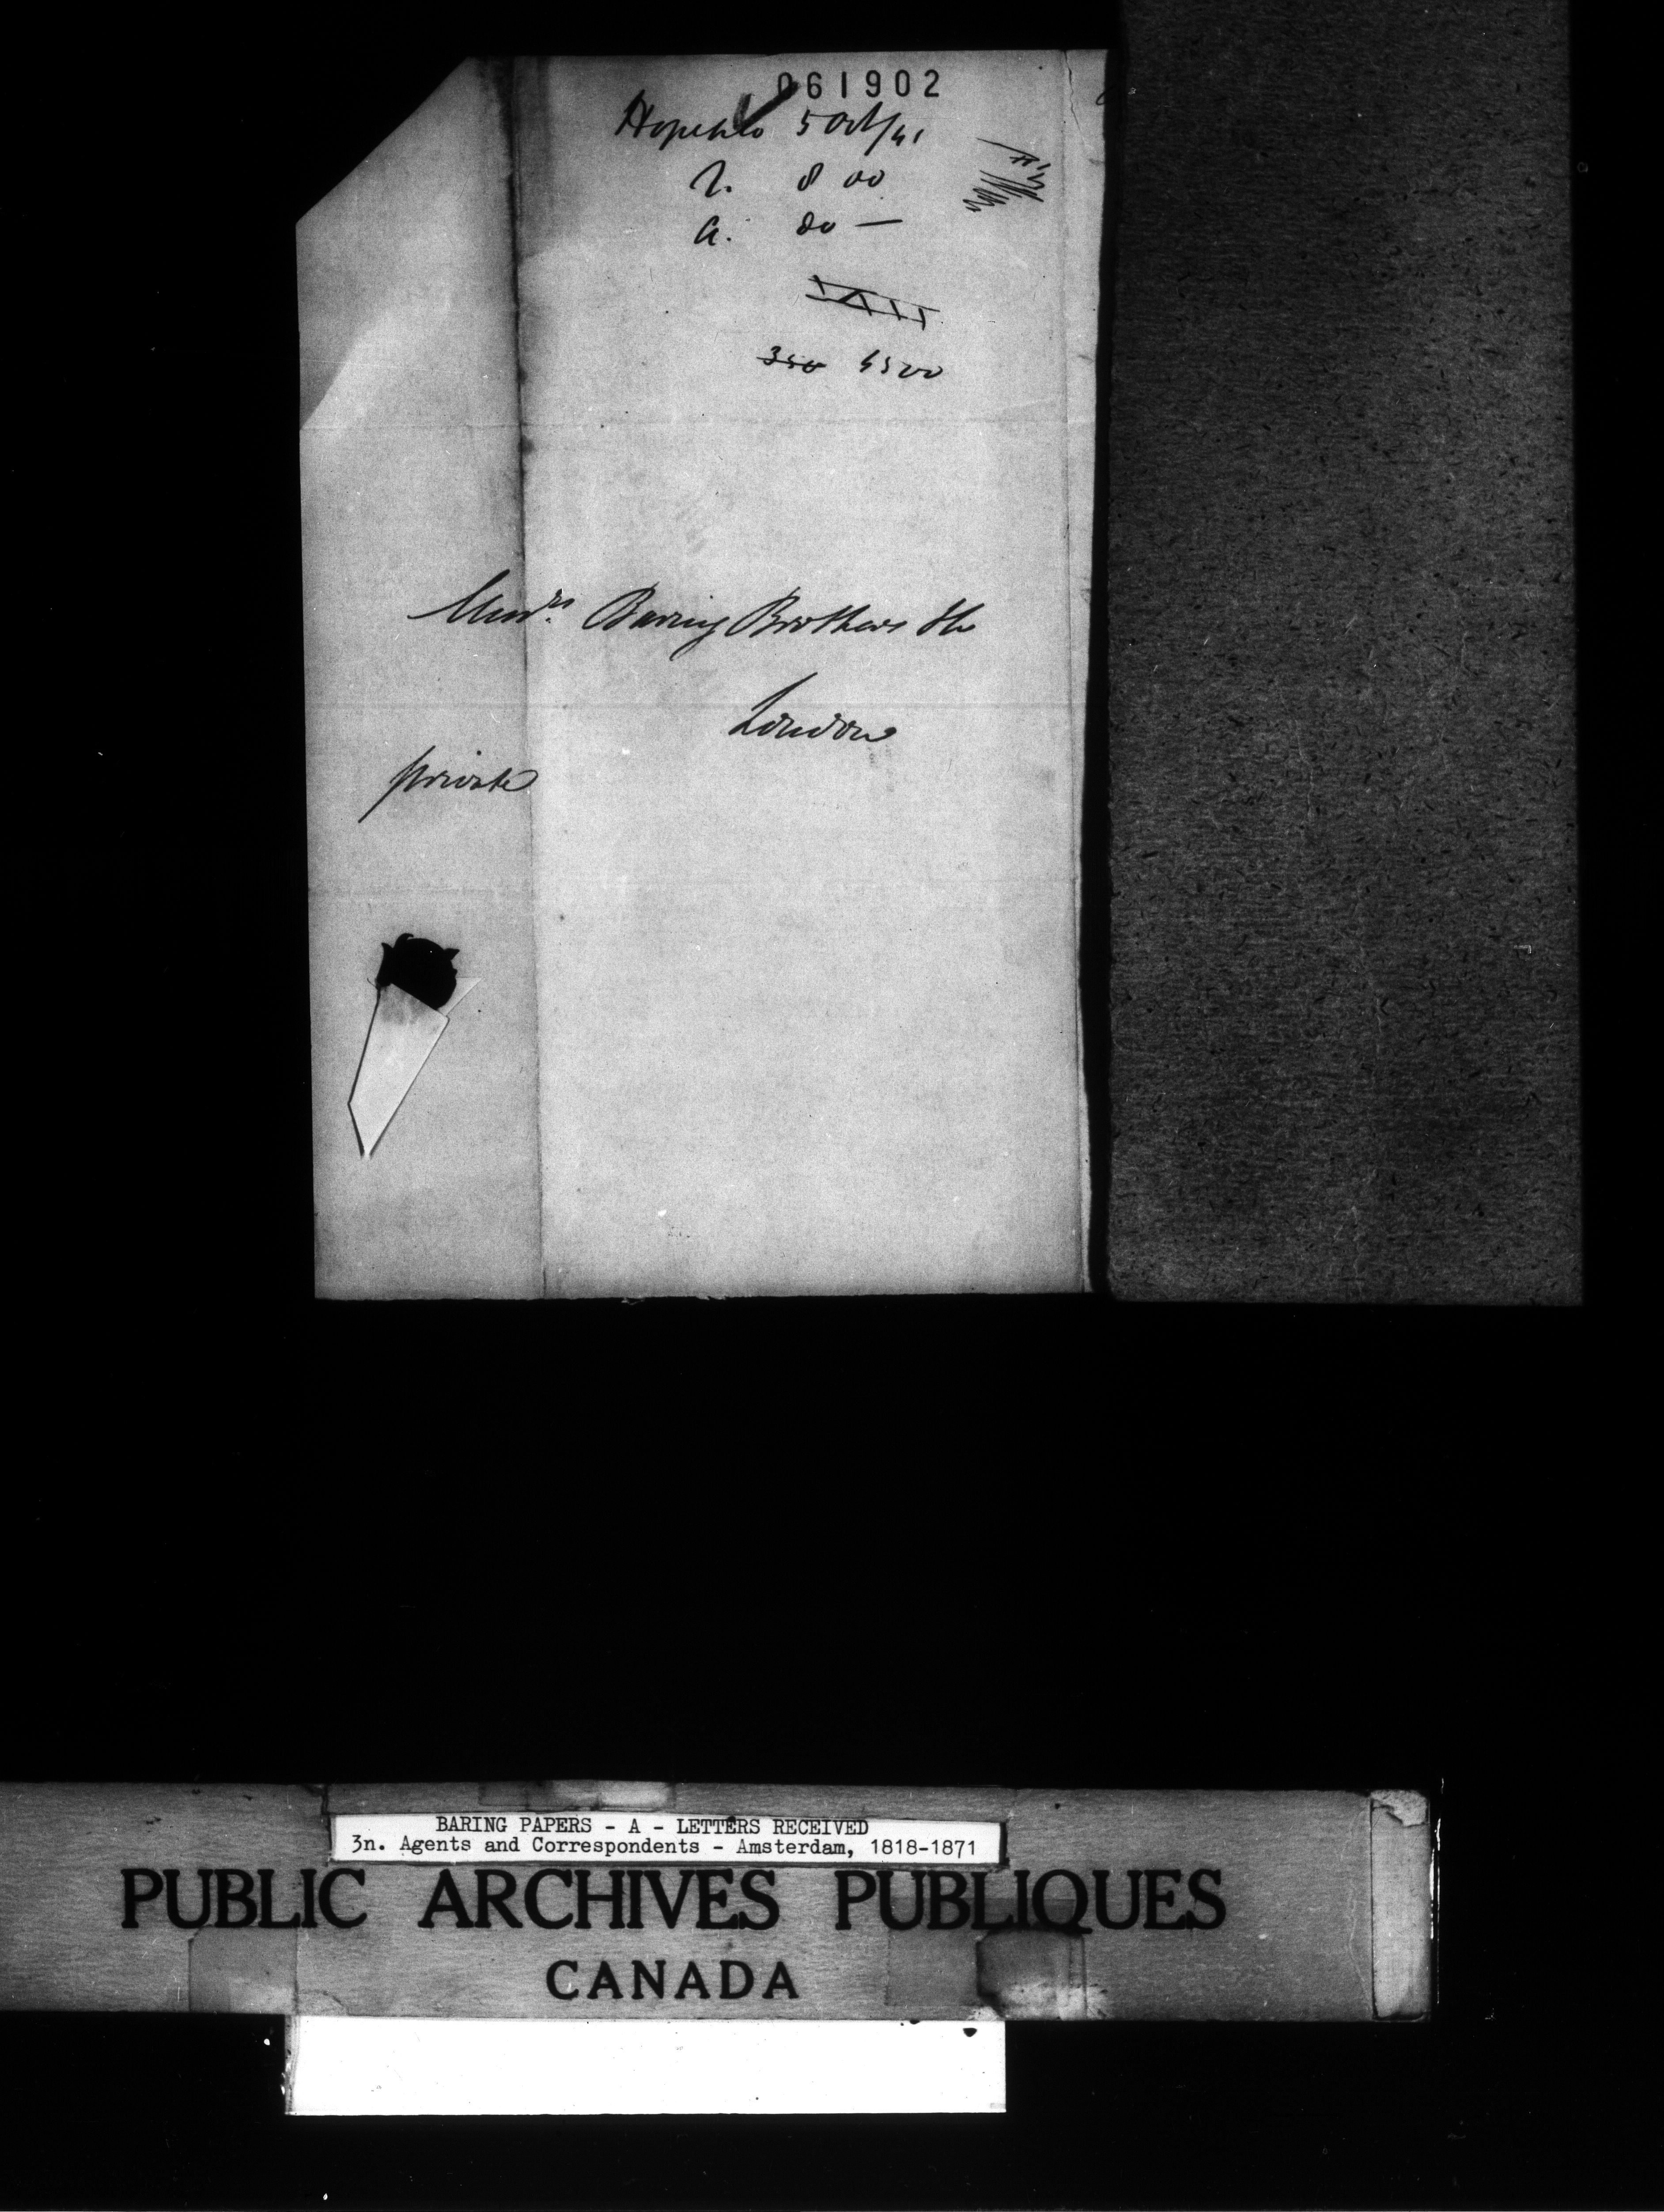 061902
Hope & Co 5 Oct/41
R. 8
A.
350 6500
Messrs. Baring Brothers & Co
London
private
BARING PAPERS - A - LETTERS RECEIVED
3n. Agents and Correspondents - Amsterdam, 1818-1871
PUBLIC ARCHIVES PUBLIQUES
CANADA